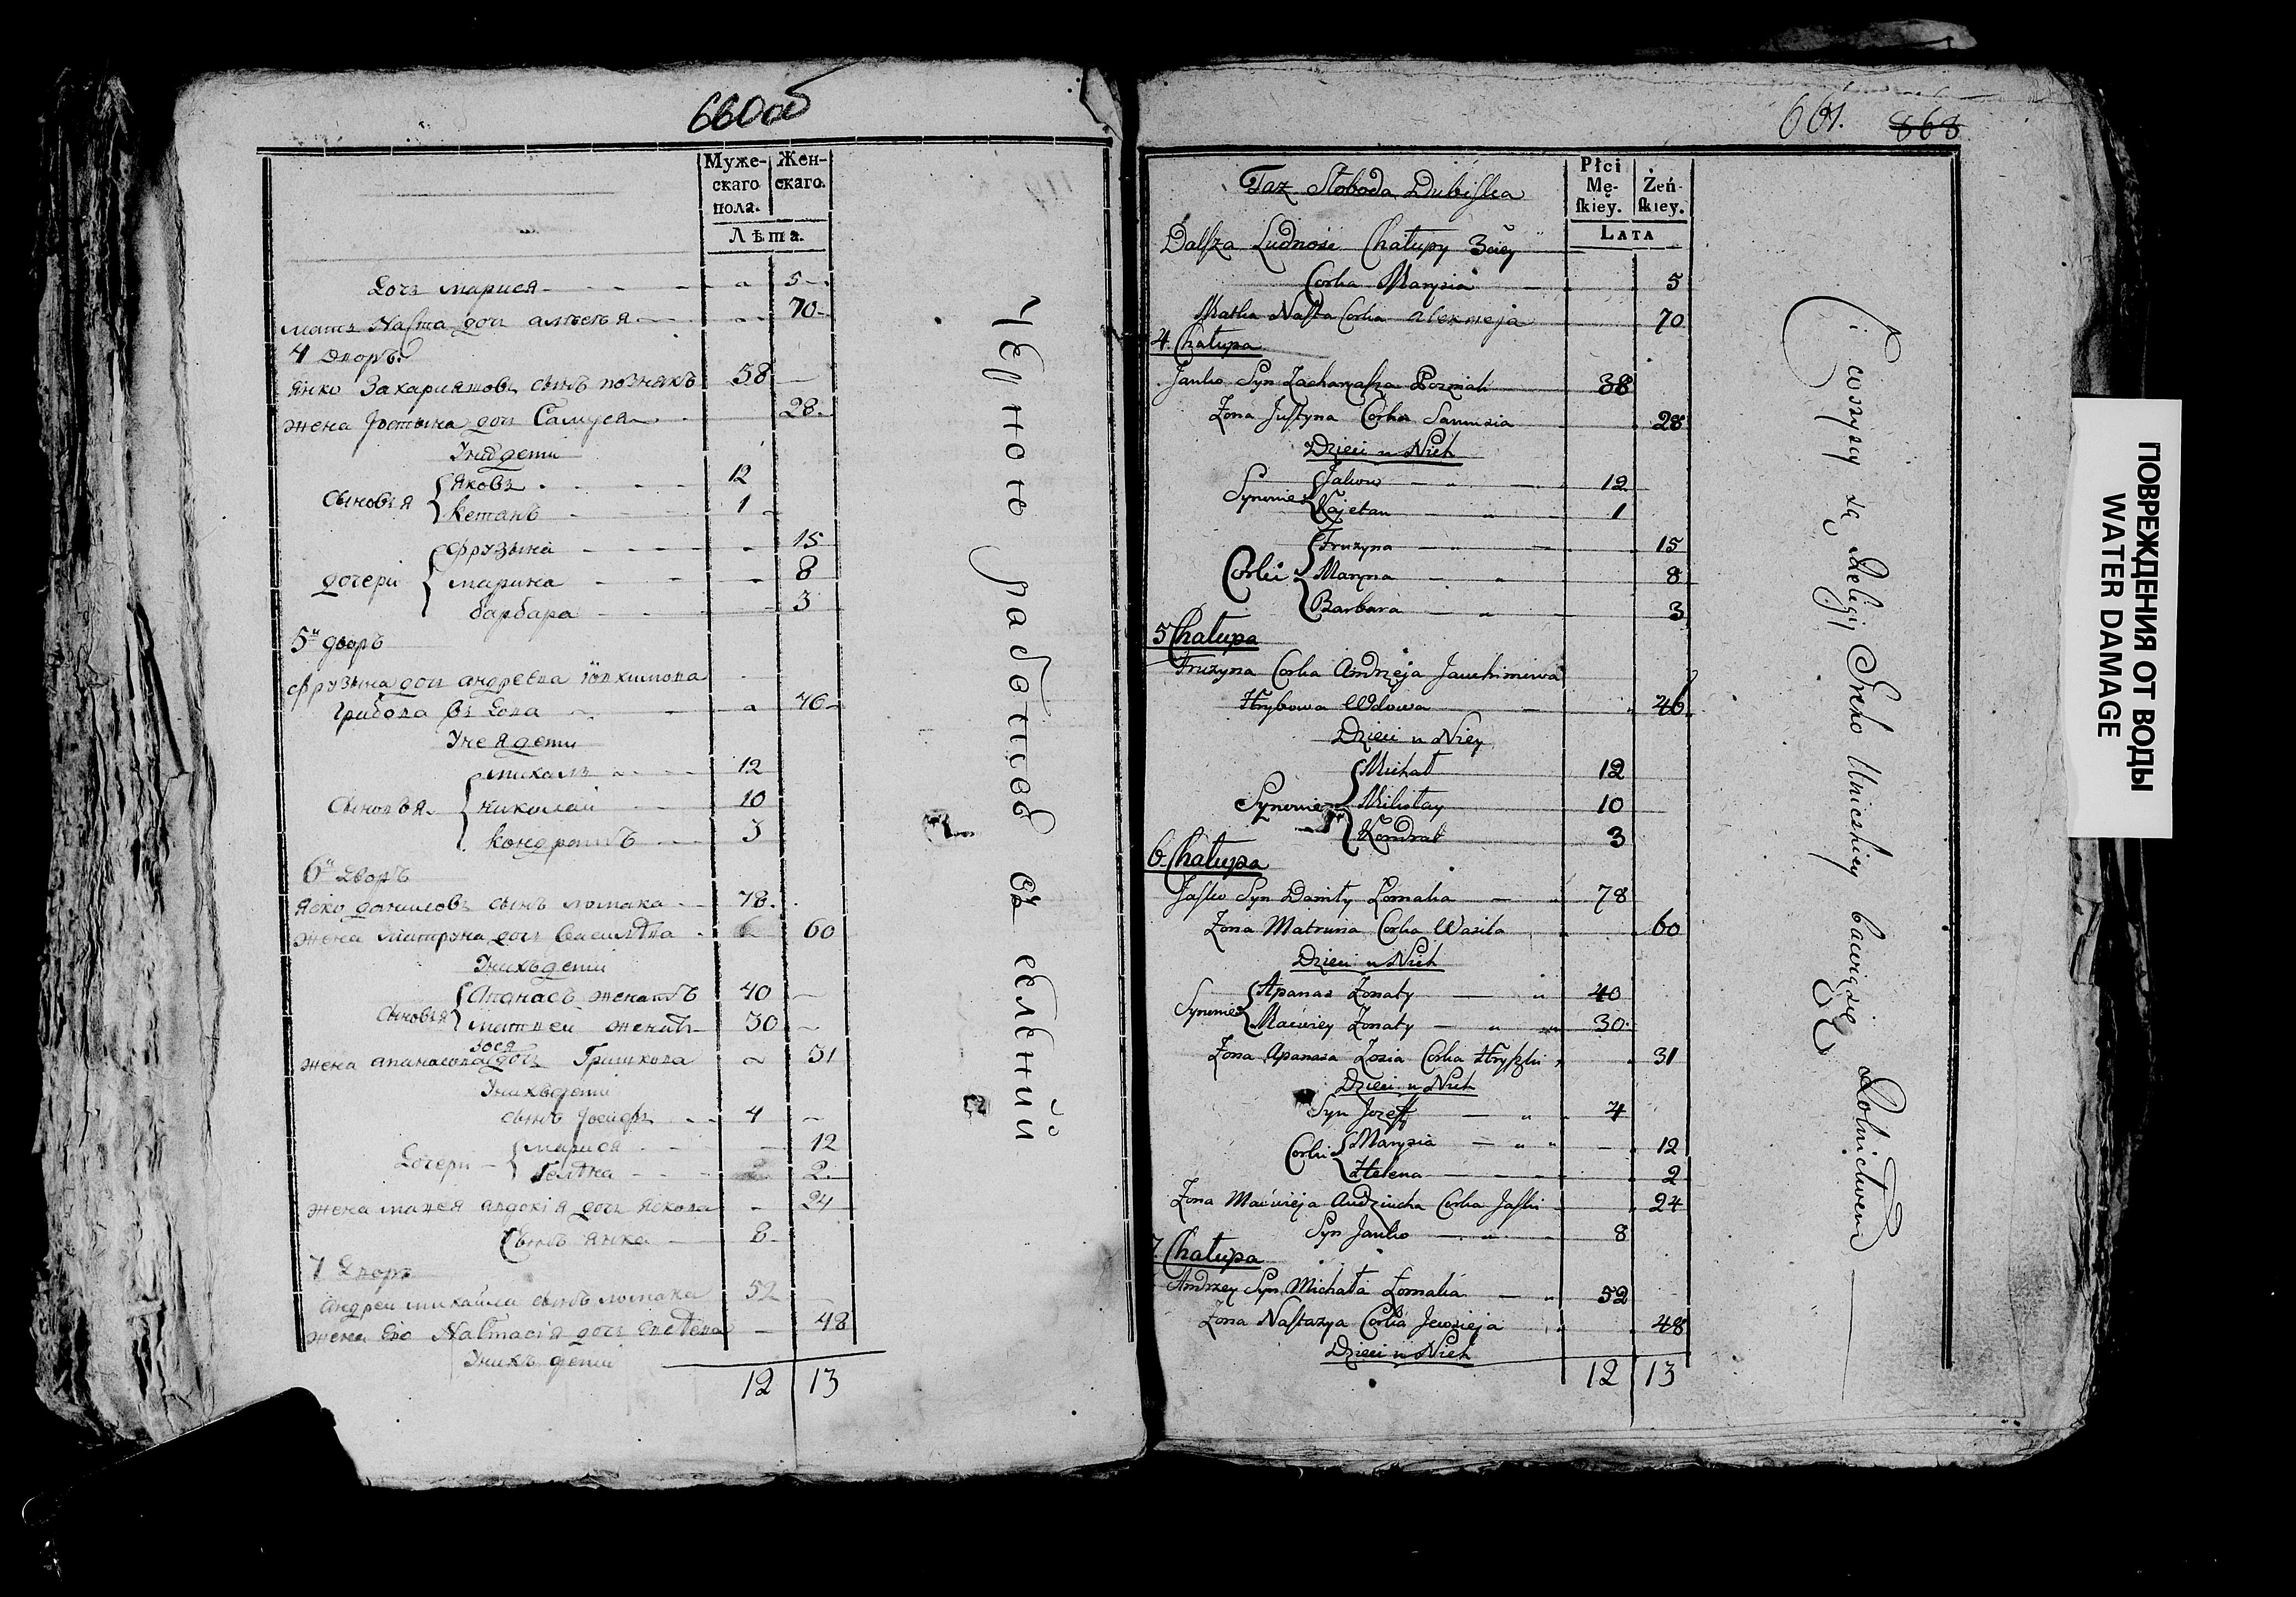 660об
Муже- Жен-
скаго скаго.
пола.
Лѣта.
Дочь марися 5
мать Nаста дочь алексѣя 70
4 Дворъ.
Янко Захарияшовъ сынъ познякъ 58
жена Юстына дочь Самуся 28
У них дети
Сыновья { яковъ 12
кетанъ 1
дочери { фрузына 15
марина 8
барбара 3
5й дворъ
фрузына дочь андреева
Грибова вдова 46
У нея дети
Сыновья { михалъ 12
николай 10
кондратъ 3
6й дворъ
Яско даниловъ сынъ ломака 78
жена Матруна дочь Василѣва 60
У нихъ дети
Сыновья { Апанасъ женатъ 40
матвей женатъ 30
зося
жена апанасова дочь Гришкова 31
У нихъ дети
сынъ Іосифъ 4
Дочери { марися 12
Гелѣна 2
жена мацея авдокія дочь Яскова 24
Сынъ янка 8
7 Дворъ
Андреи михайла сынъ ломака 52
жена Его Nастасія дочь 48
У нихъ дети
12 13
Черною работаю въ
661. 868
Taz Słoboda Dubiska
Płci
Mę- Żeń-
skiey. skiey.
LATA
Dalsza Ludność Chałupy 3ciey
Corka Marysia 5
Matka Nasta Corka Alexieja 70
4. Chałupa
Janko Syn Zacharyasza Pozniak 38
Żona Justyna Corka Samusia 28
Dzieci u Nich
Synowie { Jakow 12
Kajetan 1
Corki { Fruzyna 15
Maryna 8
Barbara 3
5 Chałupa
Fruzyna Corka Andrzeja Jauchimowa
Hrybowa Wdowa 46
Dzieci u Niey
Synowie { Michał 12
Mikołay 10
Kondrat 3
6. Chałupa
Jasko Syn Daniły Łomaka 78
Żona Matruna Corka Wasila 60
Dzieci u Nich
Synowie { Apanas Żonaty 40
Maciey Żonaty 30
Żona Apanasa Zosia Corka Hryszki 31
Dzieci u Nich
Syn Jozeff 4
Corki { Marysia 12
Helena 2
Żona Macieja Audziucha Corka Jaski 24
Syn Janko 8
7. Chałupa
Andrzey Syn Michała Łomaka 52
Żona Nastazya Corka Jewsieja 48
Dzieci u Nich
12 13
i wszyscy są Religij Greko Unickiey bawią się Rolnictwem
ПОВРЕЖДЕНИЯ ОТ ВОДЫ
WATER DAMAGE